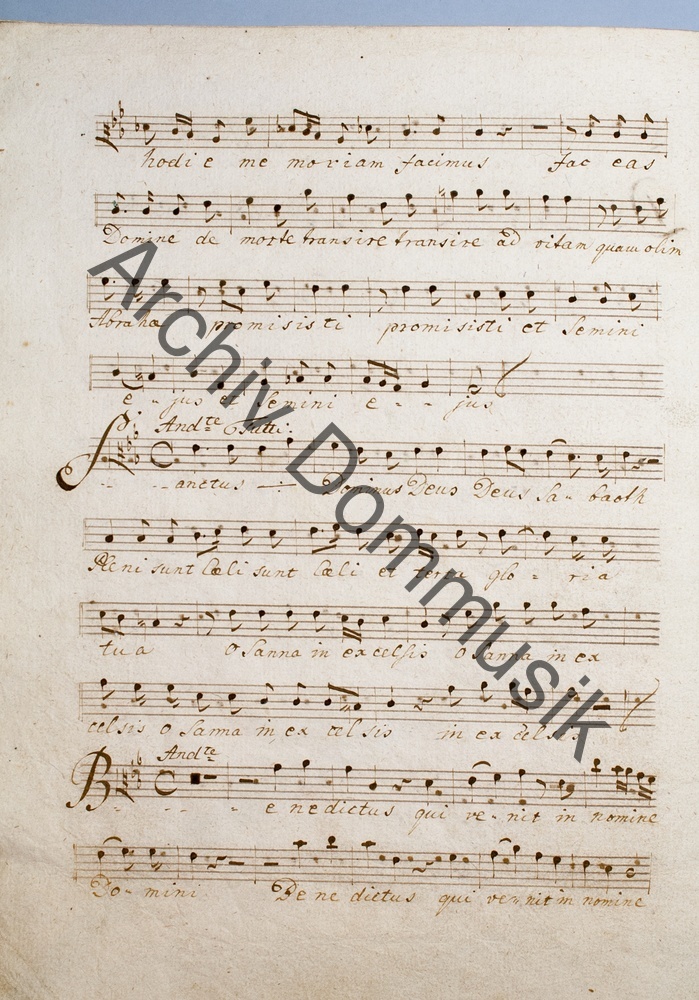 hodie me moriam facimus Fac eas
Domine de morte transire transire ad vitam quam olim
Abrahæ promisisti promisisti et Semini
e - jus et Semini e - - jus
Andte Tutti.
S - - anctus Dominus Deus Deus Sa - baoth
Pleni sunt Cœli sunt Cœli et terra glo - ria
tua oSanna in excelsis oSanna in ex
celsis oSanna in ex celsis in excelsis
Andte
B - - - - enedictus qui ve - nit in nomine
Do - mini Bene dictus qui ve - nit in nomine
Archiv Dommusik